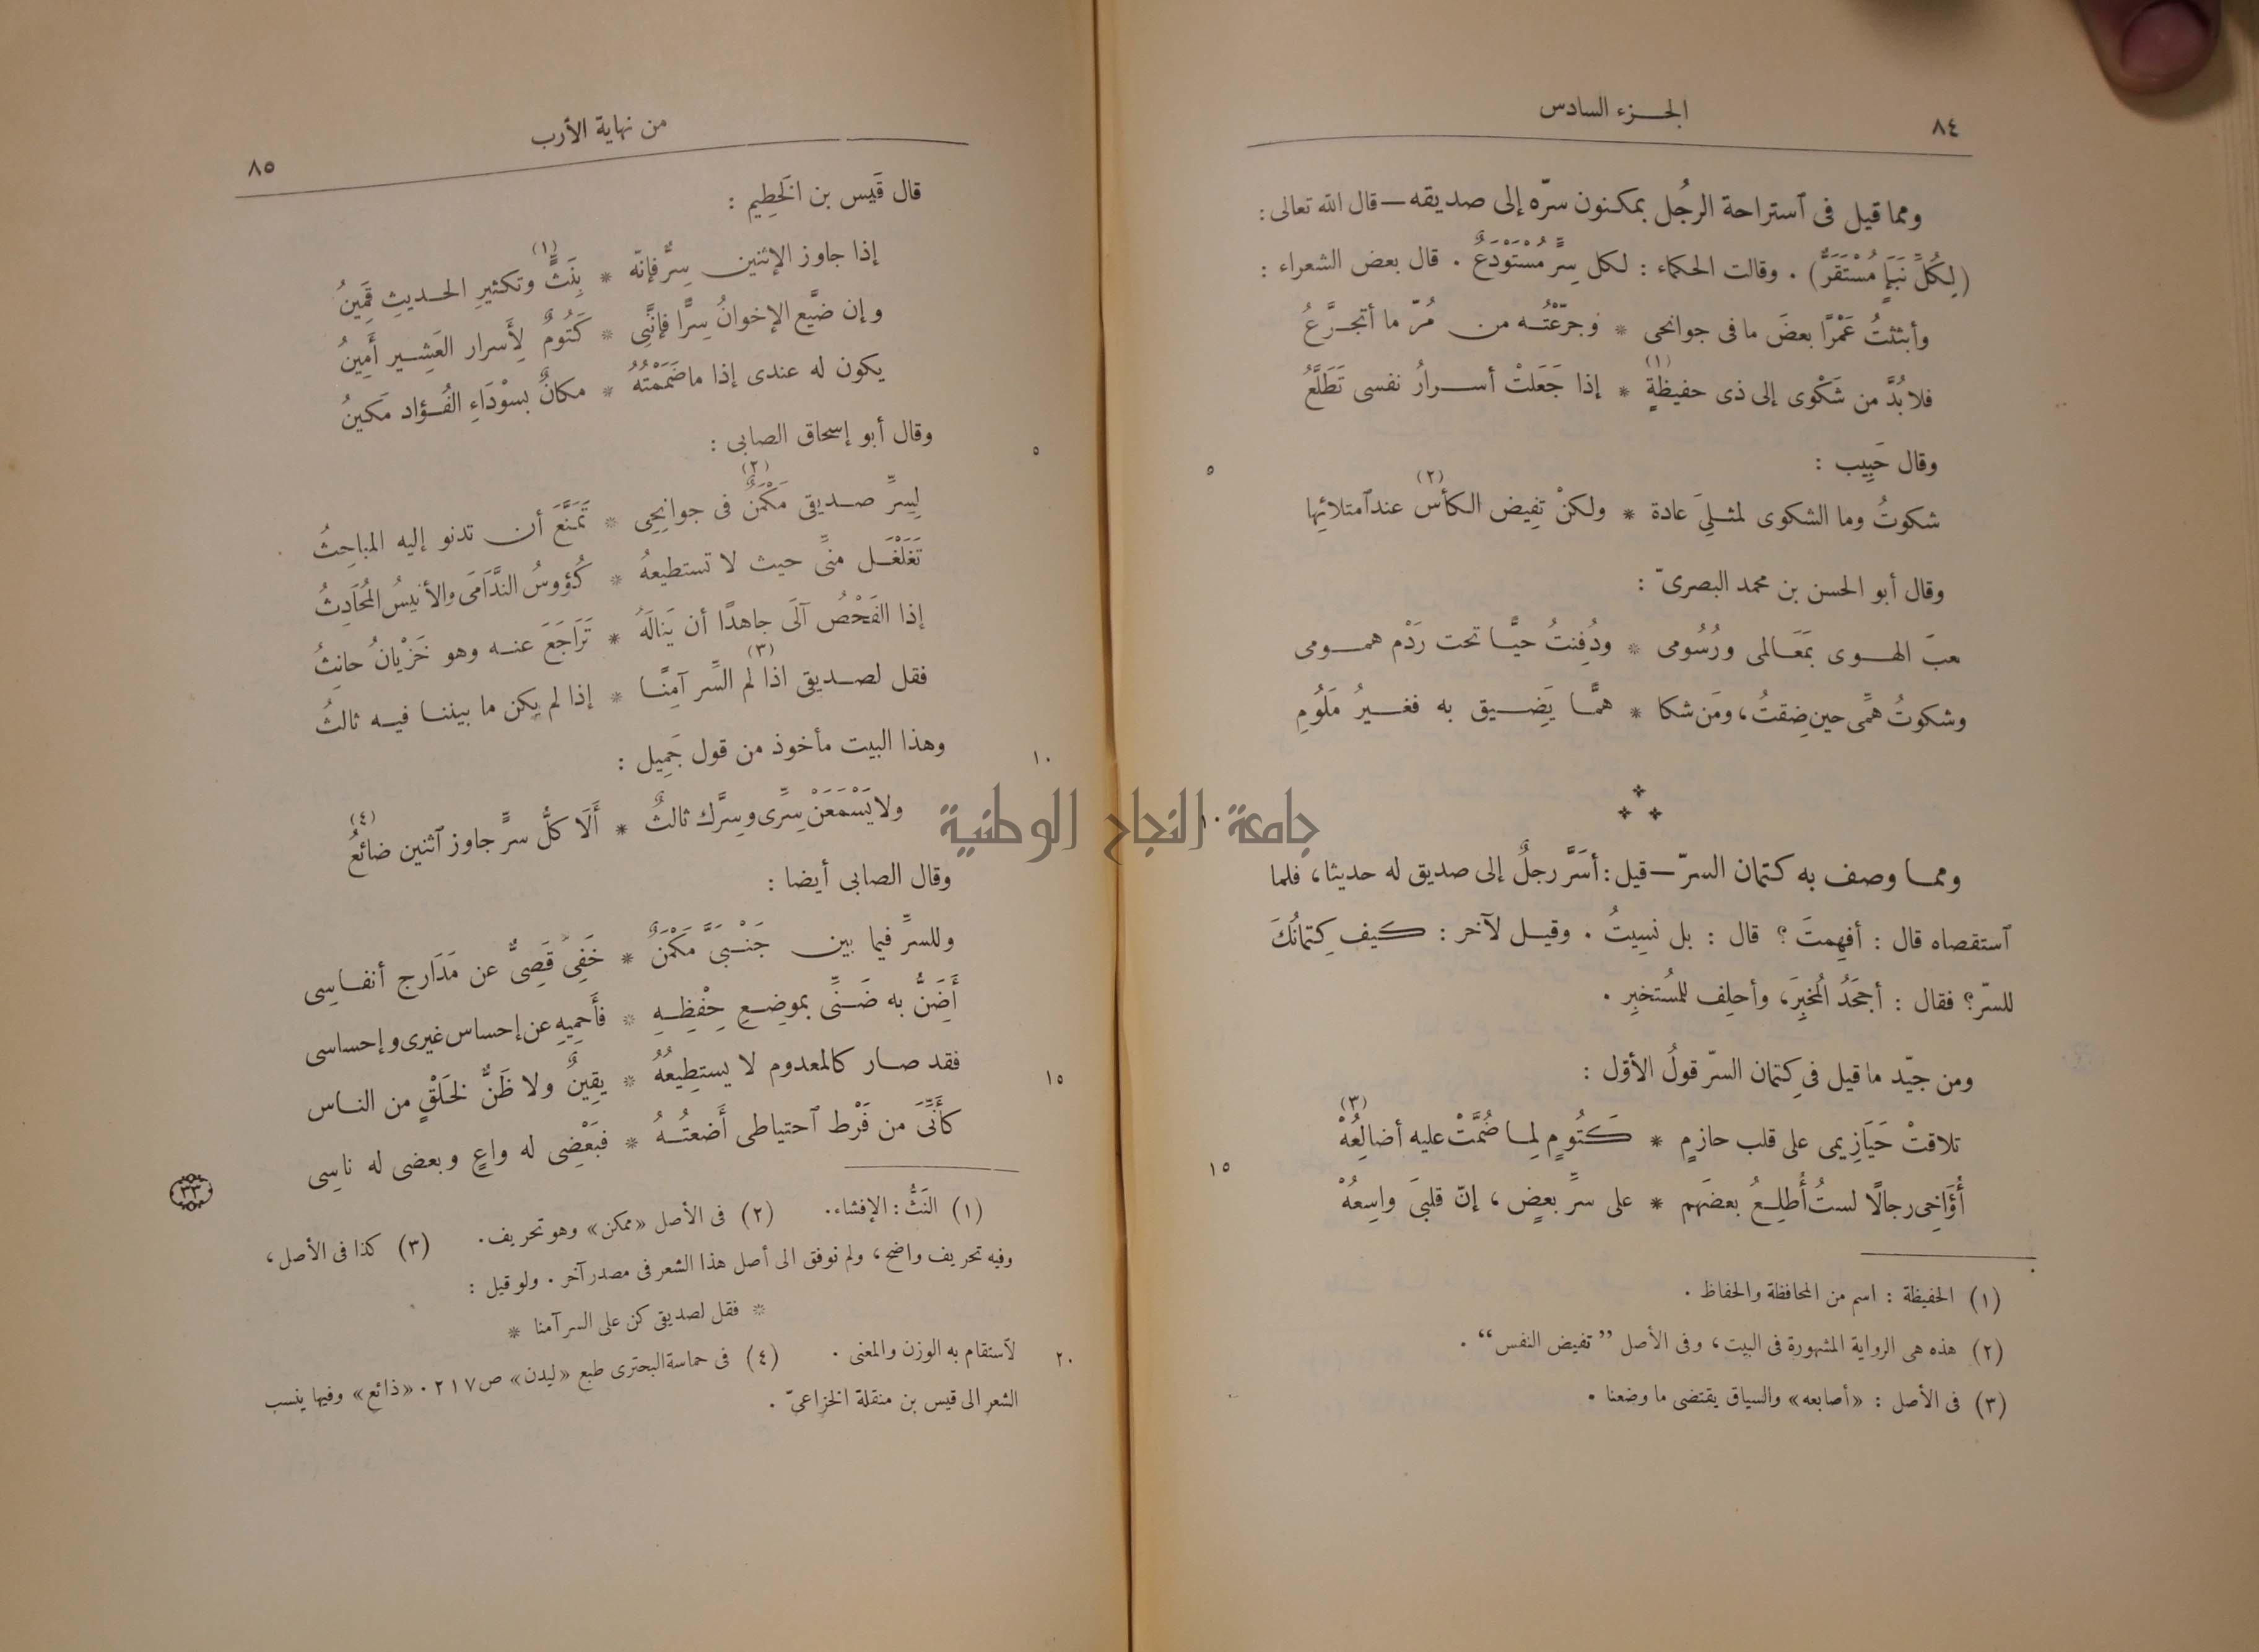 ٨٤
الجــزء السادس
ومما قيل فى ٱستراحة الرجُل بمكنون سرّه إلى صديقه — قال الله تعالى:
(لِكُلِّ نَبَإٍ مُسْتَقَرٌّ) . وقالت الحكماء : لكل سِرٍّ مُسْتَوْدَعٌ . قال بعض الشعراء :
وأبثثتُ عَمْرًا بعضَ ما فى جوانحى * وجرّعْتُه من مُرّ ما أتجرَّعُ
فلا بُدَّ من شَكْوى إلى ذى حفيظةٍ (١) * إذا جَعَلتْ أسرارُ نفسى تَطَلَّعُ
وقال حَبِيب :
٥
شكوتُ وما الشكوى لمثلِىَ عادة * ولكنْ تفِيض الكأس (٢) عند ٱمتلائِها
وقال أبو الحسن بن محمد البصرىّ :
عبَ الهوى بمَعَالمى ورُسُومى * ودُفِنتُ حيًّا تحت رَدْم همومى
وشكوتُ همِّى حين ضِقتُ، ومَن شكا * همًّا يَضِيق به فغيرُ مَلُومِ
ومما وصف به كتمان السرّ — قيل : أسَرَّ رجلٌ إلى صديق له حديثا، فلما
١٠
ٱستقصاه قال : أفهِمتَ؟ قال : بل نسِيتُ . وقيل لآخر : كيف كِتمانُكَ
للسرّ؟ فقال : أجحَدُ المُخبِرَ، وأحلِف للمُستخبِرِ .
ومن جيّد ما قيل فى كِتمان السرّ قولُ الأوّل :
تلاقتْ حَيَازِيمى على قلب حازمٍ * كَتُومٍ لِما ضُمَّتْ عليه أضالِعُهْ (٣)
١٥
أُؤَاخِى رجالًا لستُ أُطلِعُ بعضَهم * على سرِّ بعضٍ ، إنّ قلبىَ واسِعُهْ
(١) الحفيظة : اسم من المحافظة والحفاظ .
(٢) هذه هى الرواية المشهورة فى البيت، وفى الأصل "تفيض النفس" .
(٣) فى الأصل : «أصابعه» والسياق يقتضى ما وضعنا .
من نهاية الأرب
٨٥
قال قَيس بن الخَطِيم :
إذا جاوز الإثنين سِرٌّ فإنّه * بِنَثٍّ (١) وتكثيرِ الحديثِ قمِينُ
وإن ضيَّع الإخوانُ سِرًّا فإنَّنِى * كَتُومٌ لِأَسرار العَشِير أَمِينُ
يكون له عندى إذا ما ضَمَمْتُهُ * مكانٌ بسوْدَاءِ الفُؤاد مَكينُ
وقال أبو إسحاق الصابى :
٥
لِسِرِّ صديقى مَكْمَنٌ (٢) فى جوانِحِى * تَمَنَّعَ أن تدنو إليه المباحِثُ
تَغَلْغَل منِّى حيث لا تستطيعهُ * كُؤوسُ النَّدَامَى والأنيسُ المُحَادِثُ
إذا الفَحْصُ آلَى جاهدًا أن يَنالَهُ * تَرَاجَعَ عنه وهو خَزْيانُ حانِثُ
فقل لصديقى اذا لم (٣) السِّر آمِنًا * إذا لم يكن ما بيننا فيه ثالثُ
وهذا البيت مأخوذ من قول جَمِيل :
١٠
ولا يَسْمَعَنْ سِرِّى وسِرَّك ثالثٌ * أَلَا كلُّ سرٍّ جاوز ٱثنين ضائعُ (٤)
وقال الصابى أيضا :
وللسرِّ فيما بين جَنْبىَّ مَكْمَنٌ * خَفِىٌ قَصِىٌّ عن مَدَارج أنفاسِى
أَضَنُّ به ضَنِّى بموضِعِ حِفْظِهِ * فأَحمِيهِ عن إحساس غيرى وإحساسى
فقد صار كالمعدوم لا يستطِيعُهُ * يقِينٌ ولا ظَنٌّ لخَلْقٍ من الناس
١٥
كأنِّىَ من فَرْط ٱحتياطى أَضعتُهُ * فبَعْضِى له واعٍ وبعضى له ناسِى
٣٣
(١) النَثُّ : الإفشاء. (٢) فى الأصل «ممكن» وهو تحريف. (٣) كذا فى الأصل،
وفيه تحريف واضح، ولم نوفق الى أصل هذا الشعر فى مصدر آخر . ولو قيل :
* فقل لصديقى كن على السر آمنا *
٢٠
لٱستقام به الوزن والمعنى . (٤) فى حماسة البحترى طبع «ليدن» ص ٢١٧ . «ذائع» وفيها ينسب
الشعر الى قيس بن منقلة الخزاعىّ .
جامعة النجاح الوطنية